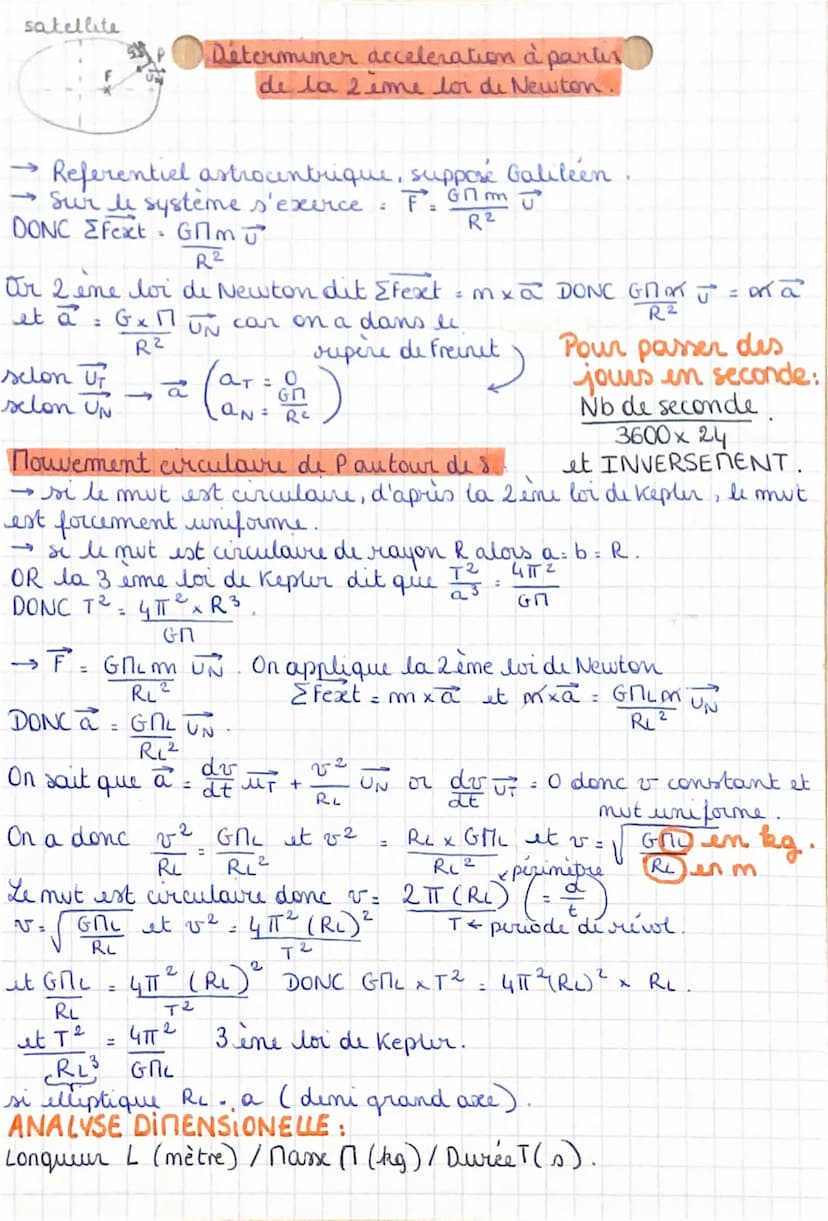 satellite
P
F
Déterminer acceleration à partir
de la 2ième loi de Newton.
→ Referentiel astrocentrique, supposé Galiléen.
→ Sur le système s'exerce : F⃗ = GMm/R² u⃗
DONC ΣFext⃗ = GMm/R² u⃗
Or 2ème loi de Newton dit ΣFext⃗ = m x a⃗ DONC GMm/R² u⃗ = m a⃗
et a⃗ = GxM/R² uN⃗ car on a dans le
rupère de Freinet
selon uT⃗ → a⃗ (aT = 0
selon uN⃗ aN = GM/R²)
Pour passer des
jours en seconde:
Nb de seconde
3600 x 24
et INVERSEMENT.
Mouvement circulaire de P autour de S
→ si le mvt est circulaire, d'après la 2ème loi de Kepler, le mvt
est forcement uniforme.
→ si le mvt est circulaire de rayon R alors a = b = R.
OR la 3ème loi de Kepler dit que T²/a³ = 4π²/GM
DONC T² = 4π²/GM x R³.
→ F⃗ = GMLm/RL² uN⃗. On applique la 2ème loi de Newton
ΣFext⃗ = m x a⃗ et m x a⃗ = GMLm/RL² uN⃗
DONC a⃗ = GML/RL² uN⃗.
On sait que a⃗ = dv/dt uT⃗ + v²/RL uN⃗ or dv/dt uT⃗ = 0 donc v constant et
mvt uniforme.
On a donc v²/RL = GML/RL² et v² = RL x GML/RL² et v = √GML/RL en kg.
en m
périmètre
Le mvt est circulaire donc v = 2π(RL)/T (= d/t)
T ← periode de révol.
v = √GML/RL et v² = 4π²(RL)²/T²
et GML/RL = 4π²(RL)²/T² DONC GML x T² = 4π²(RL)² x RL.
et T²/RL³ = 4π²/GML 3ème loi de Kepler.
si elliptique RL = a (demi grand axe).
ANALYSE DIMENSIONELLE :
Longueur L (mètre) / Masse M (kg) / Durée T (s).